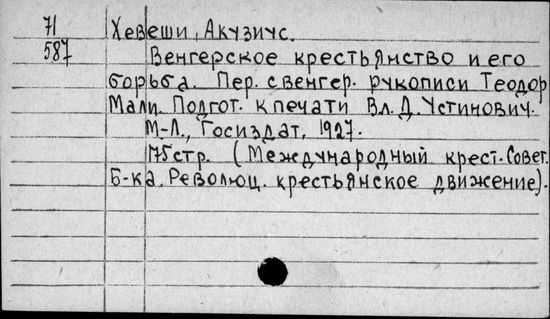 71 Хевеши, Акузиус.
587 Венгерское крестьянство и его
борьба. Пер. с венгер. рукописи Теодор
Мали. Подгот. к печати Вл. Д. Устинович.
М-Л., Госиздат, 1927.
175 стр. (Международный крест. Совет.
Б-ка. Революц. крестьянское движение).